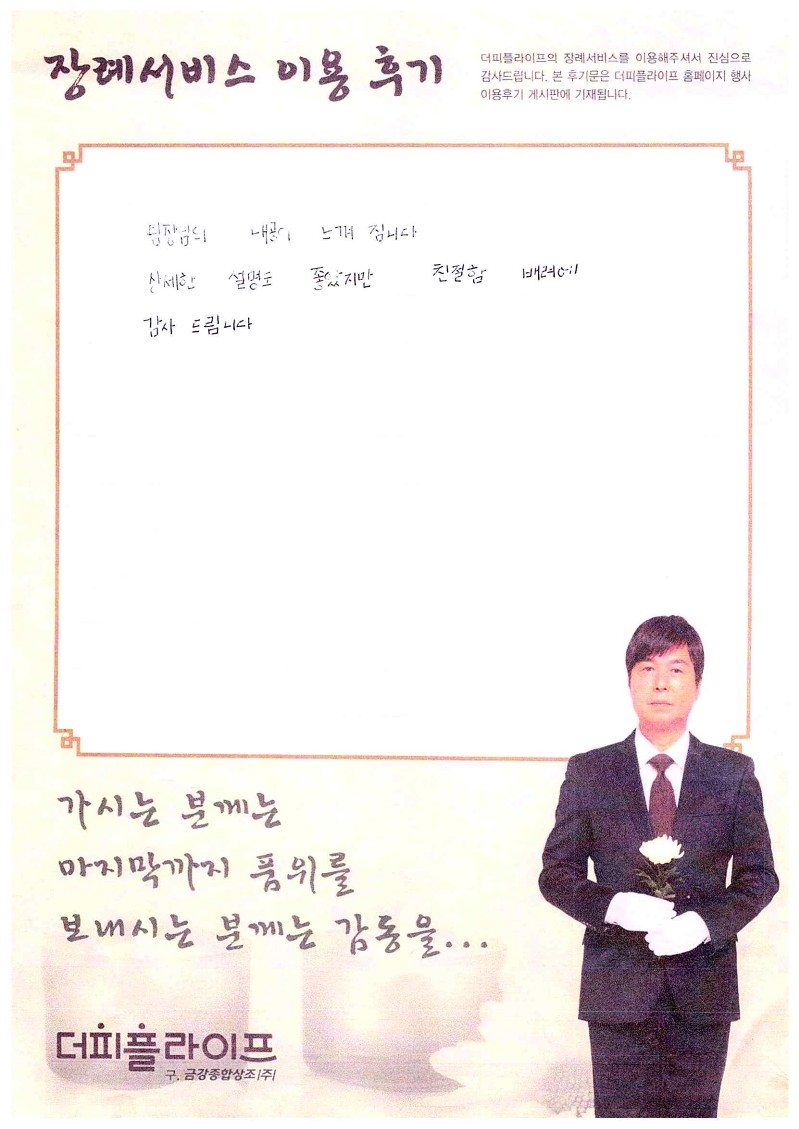 장례서비스 이용 후기
더피플라이프의 장례서비스를 이용해주셔서 진심으로
감사드립니다. 본 후기문은 더피플라이프 홈페이지 행사
이용후기 게시판에 기재됩니다.
팀장님의 내공이 느껴 집니다
상세한 설명도 좋았지만 친절함 배려에
감사 드립니다
가시는 분께는
마지막까지 품위를
보내시는 분께는 감동을...
더피플라이프
구. 금강종합상조(주)